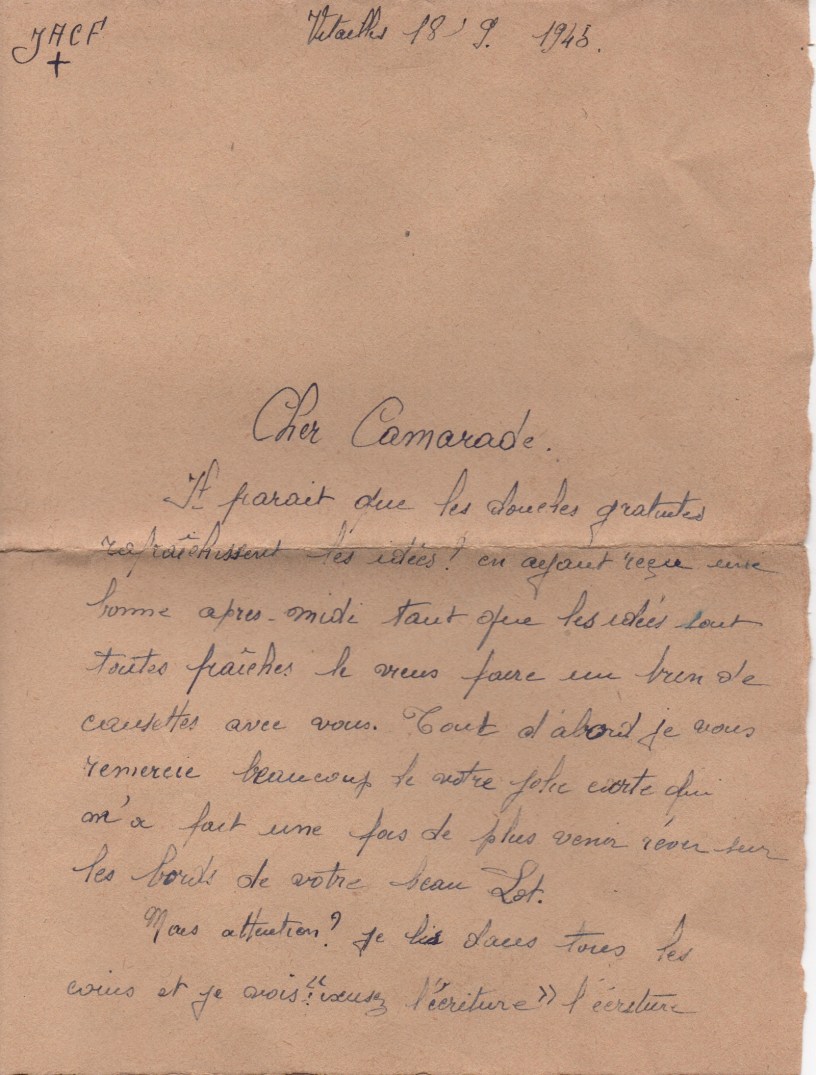 JACF
+
18 9. 1945.
Cher Camarade.
It parait que les douches gratuites
rafraîchissent les idées! en ayant reçu une
bonne apres-midi tant que les idées sont
toutes fraîches je viens faire un brin de
causettes avec vous. Tout d'abord je vous
remercie beaucoup de votre jolie carte qui
m'a fait une fois de plus venir rêver sur
les bords de votre beau Lot.
Mais attention? je lis dans tous les
coins et je vois "excusez l'écriture" l'écriture